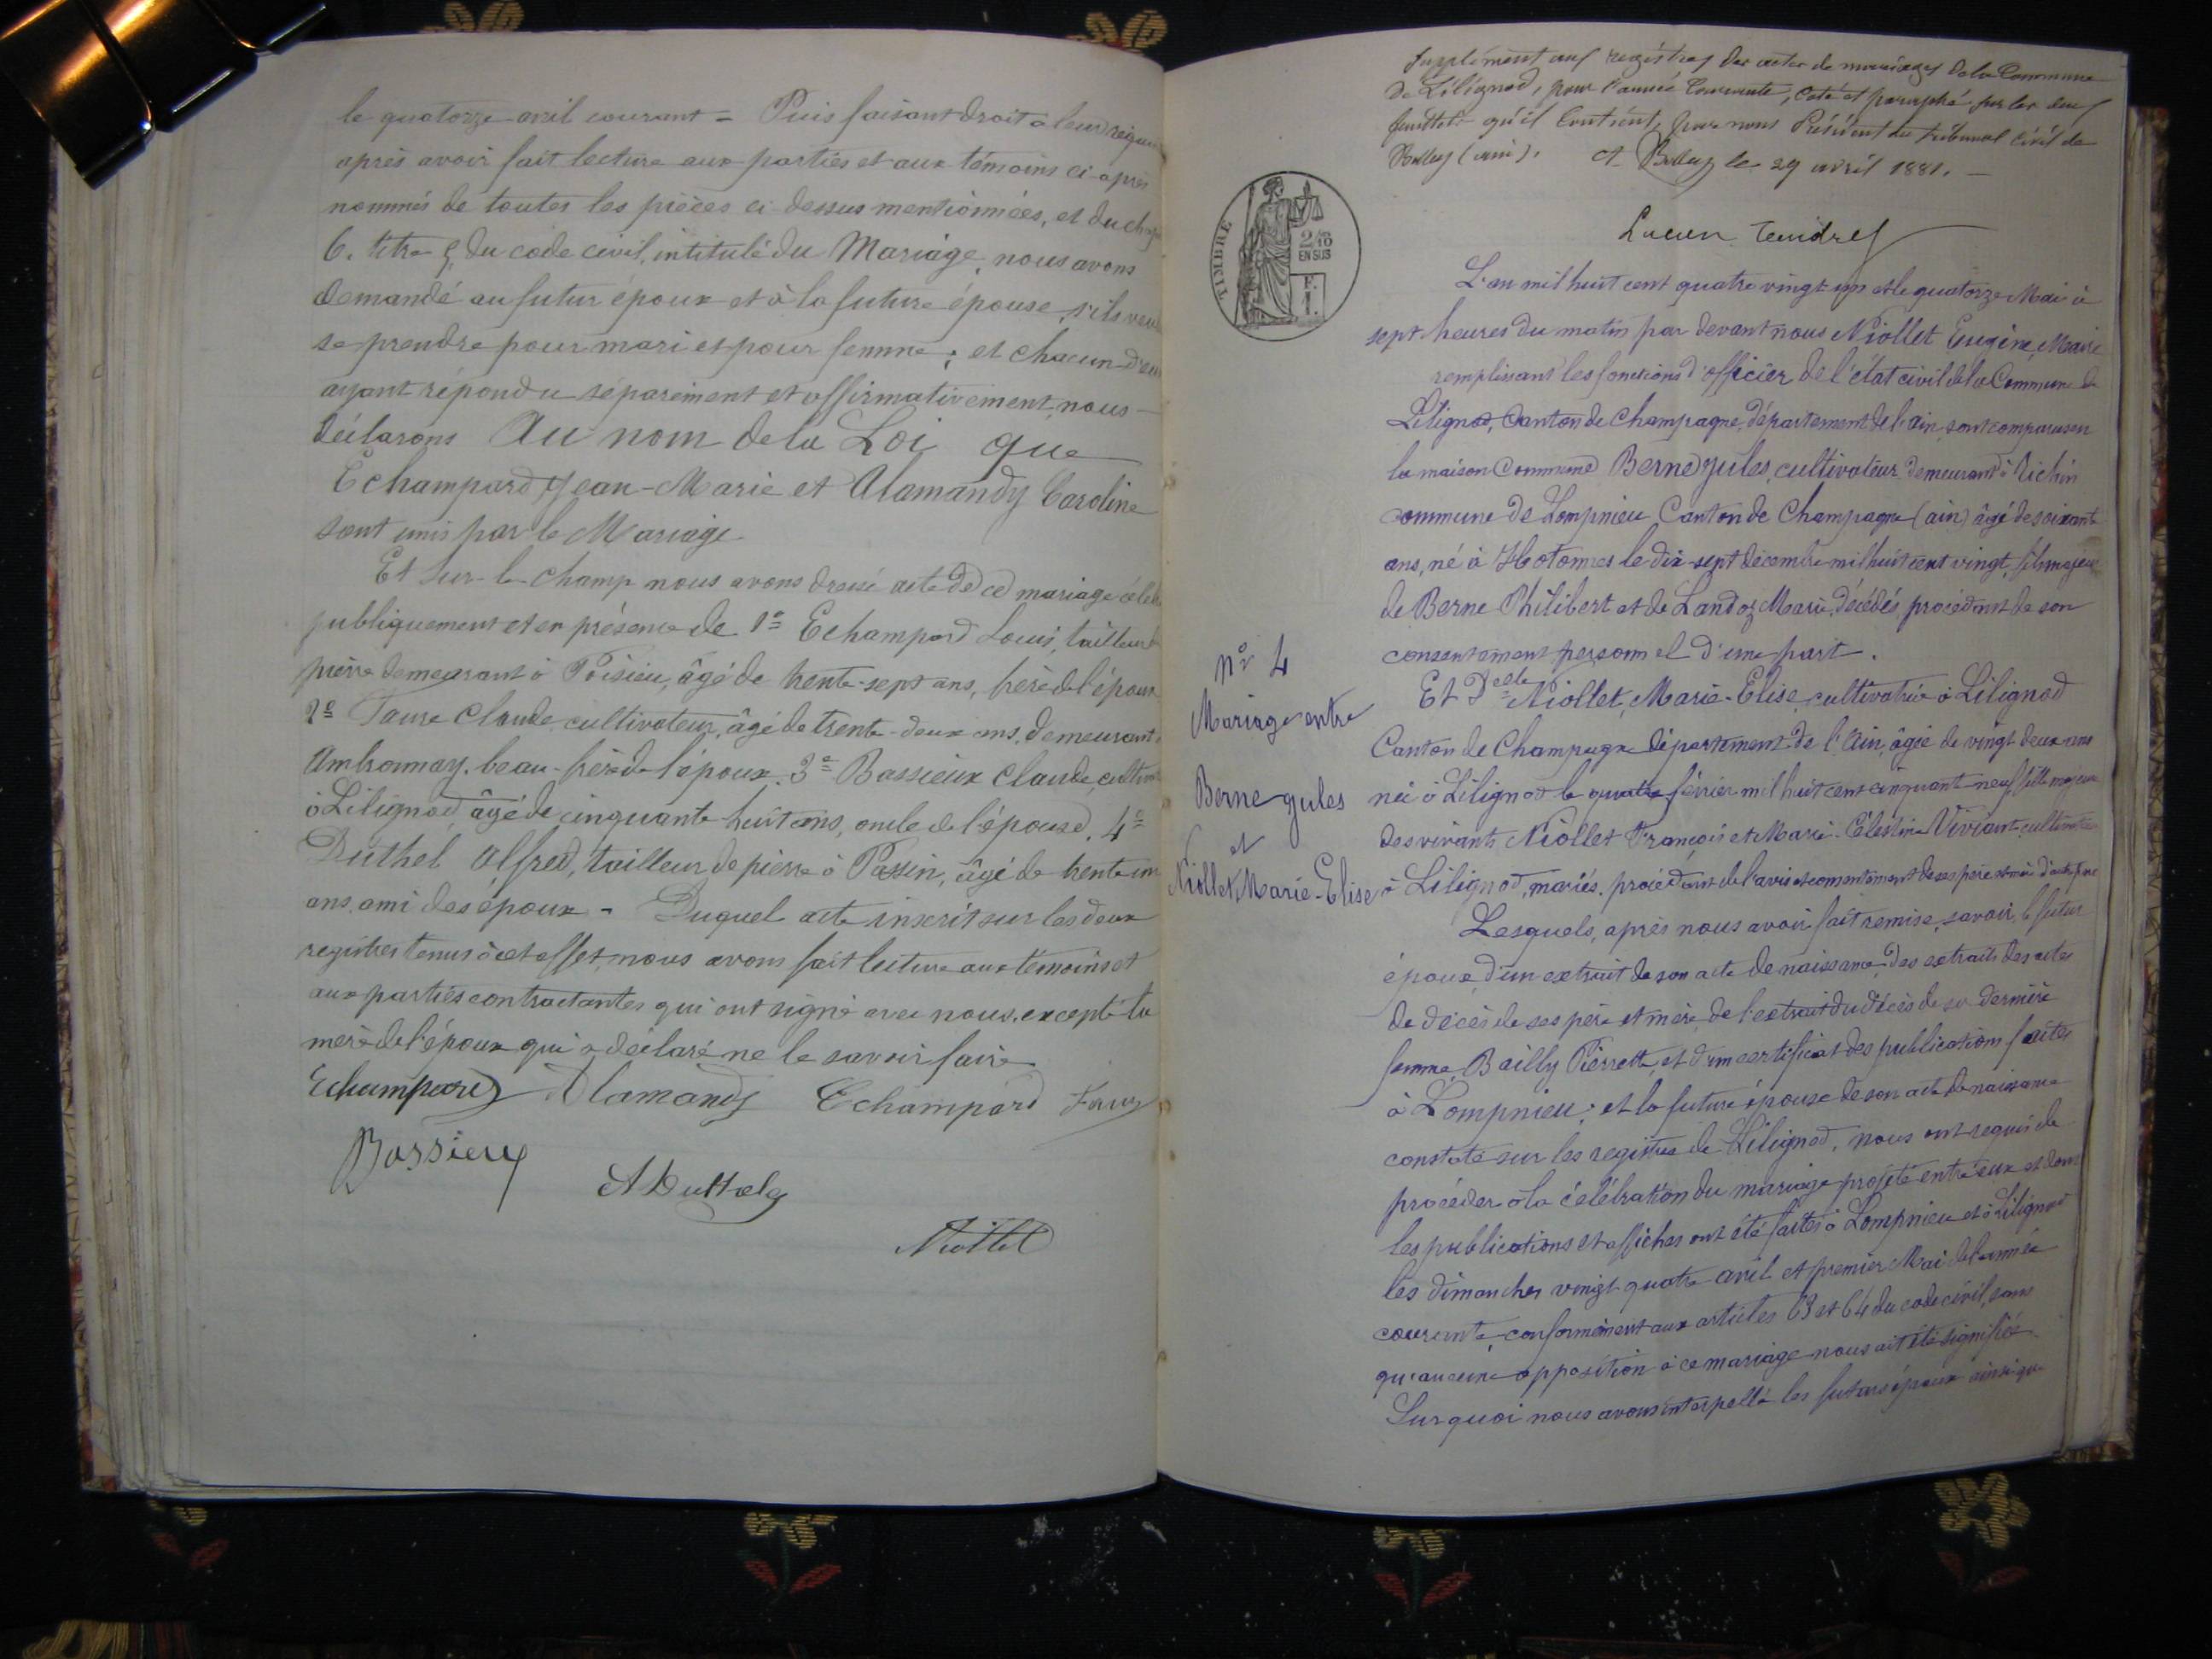 le quatorze avril courant = Puis faisant droit à leur
après avoir fait lecture aux parties et aux témoins ci-après
nommés de toutes les pièces ci-dessus mentionnées, et du
6. titre 5 du code civil, intitulé du Mariage, nous avons
demandé au futur époux et à la future épouse s'ils
se prendre pour mari et pour femme ; et chacun
ayant répondu séparément et affirmativement, nous —
déclarons Au nom de la Loi que
Echampard Jean-Marie et Alamandy Caroline
sont unis par le Mariage.
Et sur-le-champ nous avons dressé acte de ce mariage
publiquement et en présence de 1° Echampard Louis, tailleur
pierre demeurant à Poisieu, âgé de trente-sept ans, frère de l'époux
2° Faure Claude cultivateur, âgé de trente-deux ans, demeurant
Ambronnay, beau-frère de l'époux. 3° Bassieux Claude,
à Lilignod âgé de cinquante huit ans, oncle de l'épouse, 4°
Duthel Alfred, tailleur de pierre à Passin, âgé de trente
ans, ami des époux - Duquel acte inscrit sur les deux
registres tenus à cet effet, nous avons fait lecture aux témoins et
aux parties contractantes qui ont signé avec nous, excepté la
mère de l'époux qui a déclaré ne le savoir faire
Echampard Alamandy Echampard Faure
Bassieux
A Duthel
Niollet
Supplément aux registres des actes de mariages de la Commune
de Lilignod, pour l'année courante, coté et paraphé sur les deux
feuillets qu'il contient, par nous Président du tribunal civil de
Belley (ain). A Belley le 29 avril 1881. —
Lucien
TIMBRE
2/10
EN SUS
F.
1.
L'an mil huit cent quatre vingt un et le quatorze Mai à
sept heures du matin par devant nous Niollet Eugène, Maire
remplissant les fonctions d'officier de l'état civil de la Commune de
Lilignod, Canton de Champagne, département de l'ain, sont comparus en
la maison Commune Berne Jules, cultivateur demeurant à
commune de Lompnieu Canton de Champagne (ain) âgé de soixante
ans, né à Hotonnes le dix-sept décembre mil huit cent vingt, fils majeur
de Berne Philibert et de Landoz Marie, décédés procédant de son
consentement personnel d'une part.
Et Delle Niollet, Marie-Elise, cultivatrice à Lilignod
Canton de Champagne département de l'Ain, âgée de vingt deux ans
née à Lilignod le quatre février mil huit cent cinquante-neuf, fille majeure
des vivants Niollet François et Marie-Célestine Viviant cultivateurs
à Lilignod, mariés, procédant de l'avis et consentement de ses père et mère d'autre part
Lesquels, après nous avoir fait remise, savoir, le futur
époux, d'un extrait de son acte de naissance, des extraits des actes
de décès de ses père et mère, de l'extrait du décès de sa dernière
femme Bailly Pierrette, et d'un certificat des publications faites
à Lompnieu ; et la future épouse de son acte de naissance
constaté sur les registres de Lilignod, nous ont requis de
procéder à la célébration du mariage projeté entre eux et dont
les publications et affiches ont été faites à Lompnieu et à Lilignod
les dimanches vingt-quatre avril et premier Mai de l'année
courante, conformément aux articles 63 et 64 du code civil, sans
qu'aucune opposition à ce mariage nous ait été signifiée.
Sur quoi nous avons interpellé les futurs époux ainsi que
N° 4
Mariage entre
Berne Jules
et
Niollet Marie-Elise